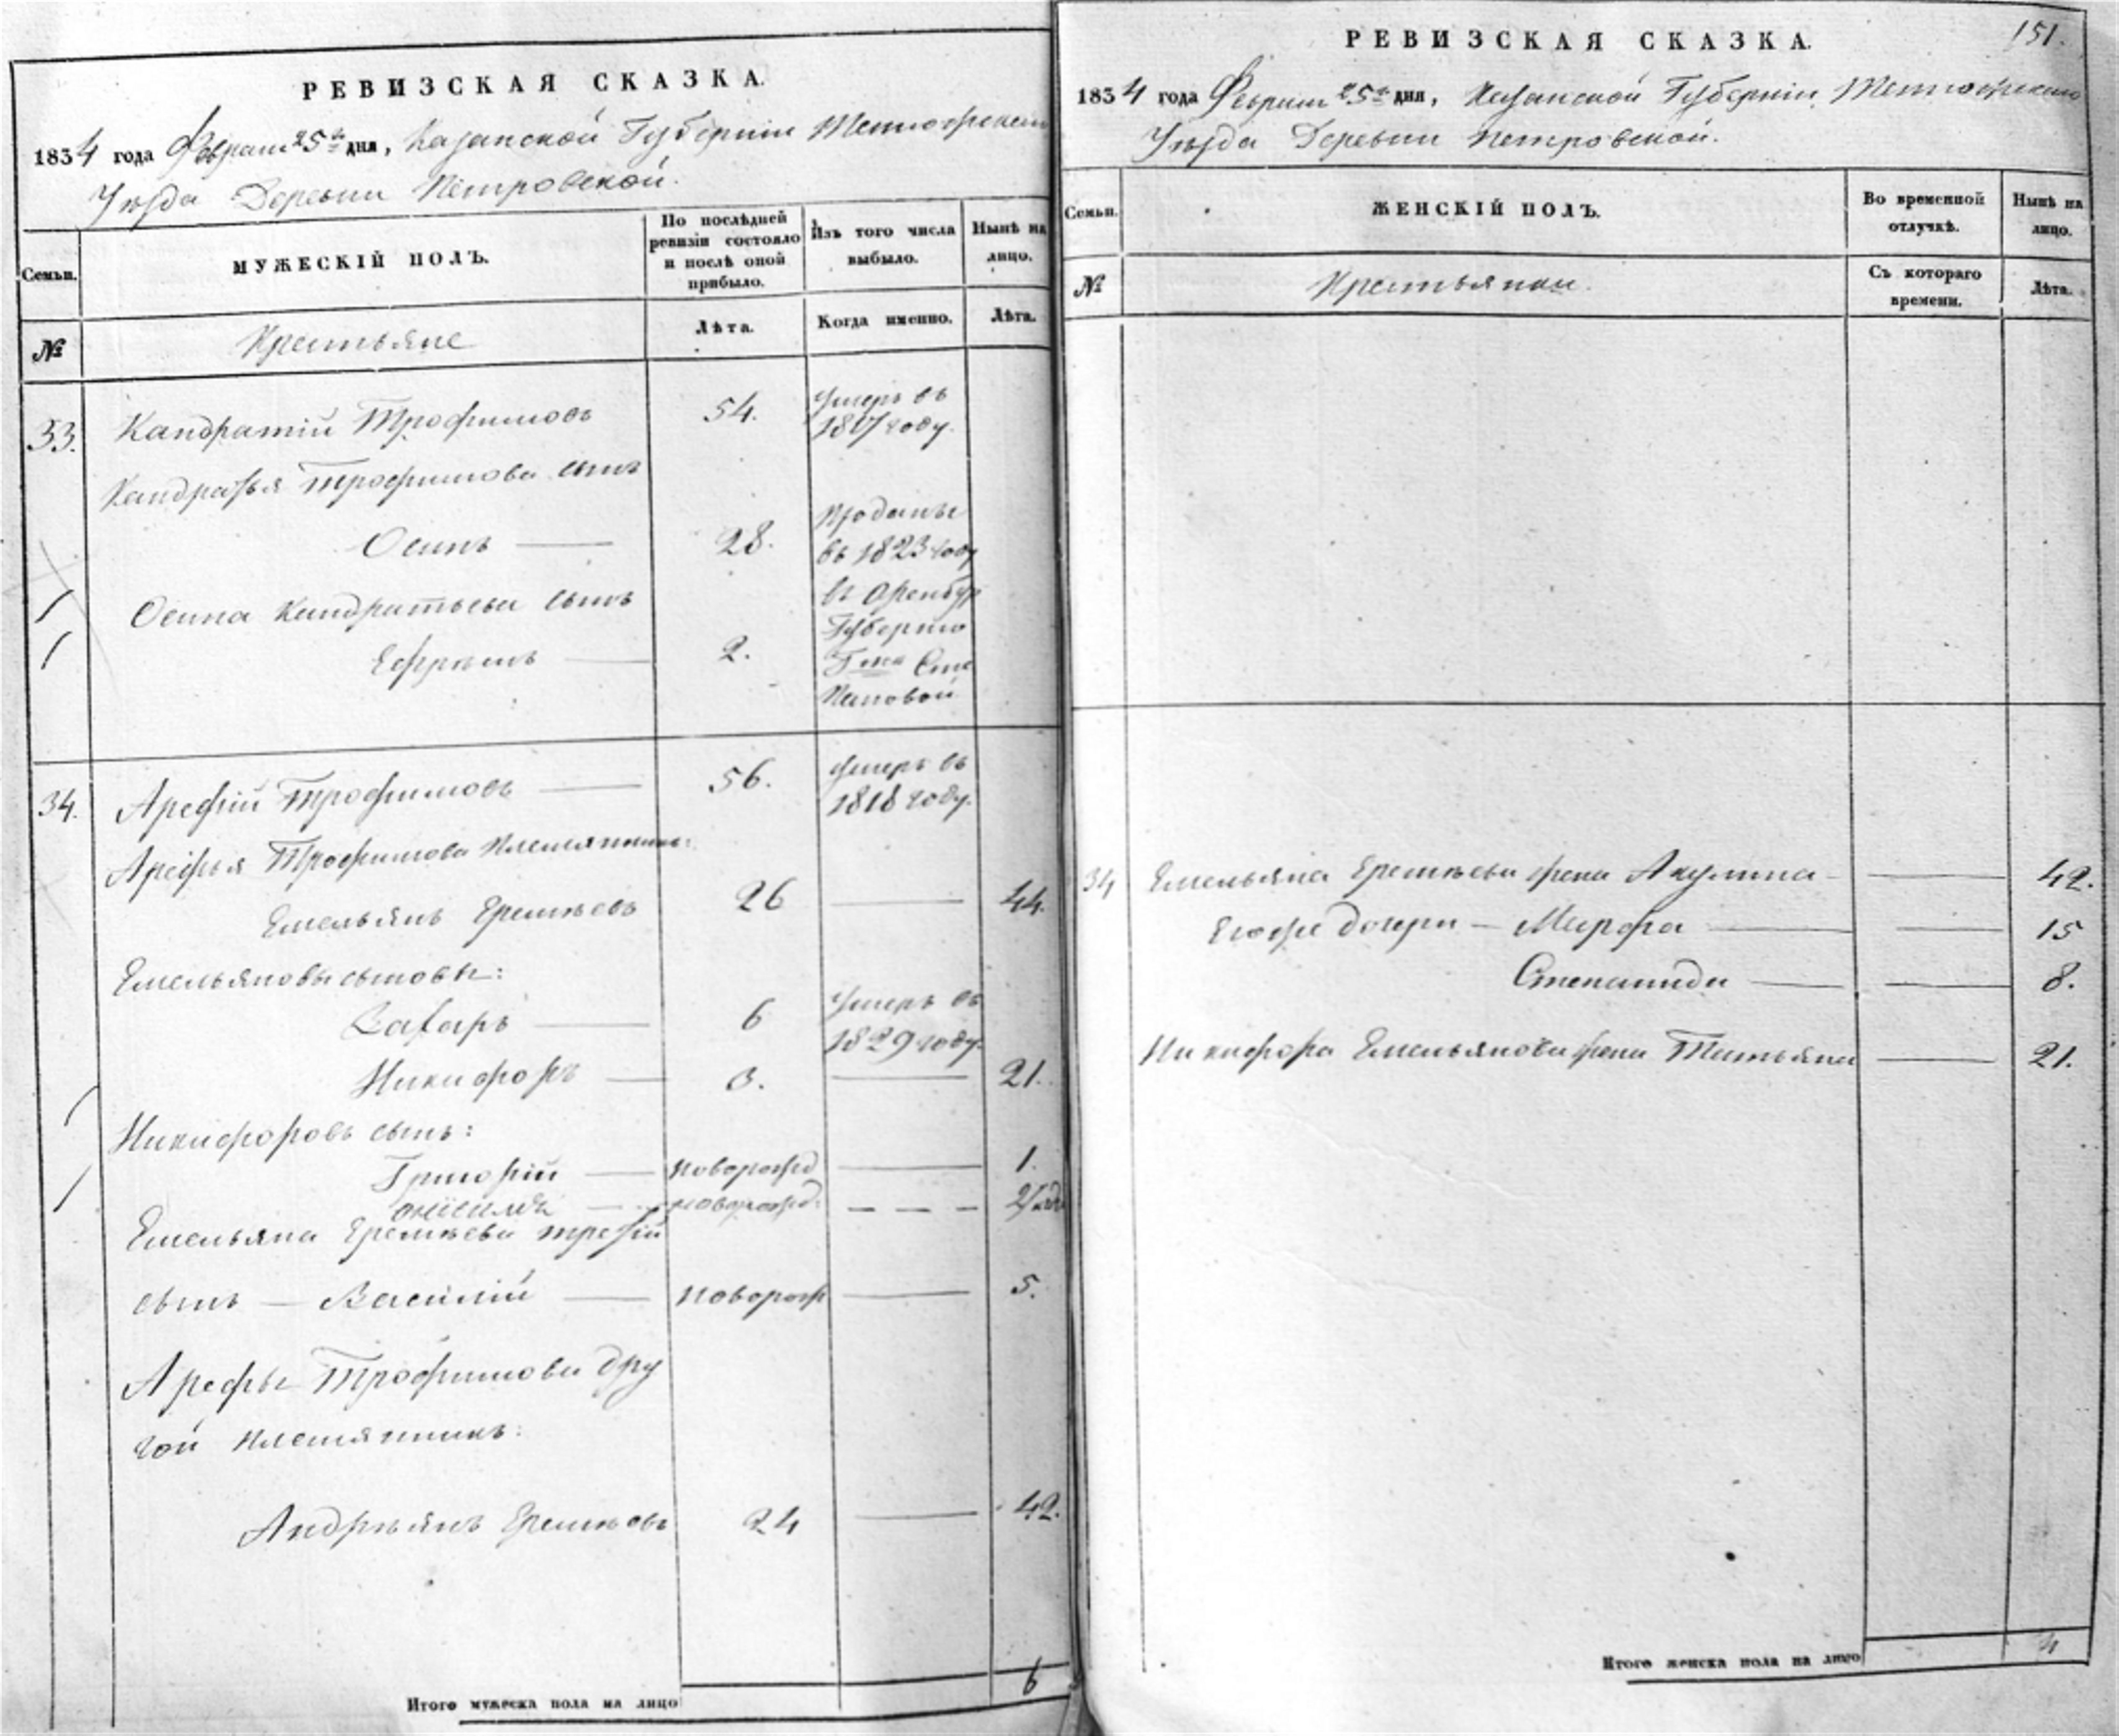 РЕВИЗСКАЯ СКАЗКА.
1834 года Февраля 25го дня, Казанской Губерніи Тетюшскаго
Уѣзда Деревни Петровской.
Семьи.
МУЖЕСКІЙ ПОЛЪ.
По послѣдней ревизіи состояло и послѣ оной прибыло.
Изъ того числа выбыло.
Нынѣ на лицо.
№
Крестьяне
Лѣта.
Когда именно.
Лѣта.
33. Кандратій Трофимовъ 54. умеръ въ
1817 году.
Кандратья Трофимова сынъ
Осипъ — 28. проданы
въ 1823 году
въ Оренбур
Осипа Кандратьева сынъ
Губернію
Ефрѣмъ — 2.
Гже Сте
пановой
34. Арефій Трофимовъ — 56. умеръ въ
1818 году.
Арефья Трофимова племянникъ:
Емельянъ Еремѣевъ 26 — 44.
Емельяновы сыновы:
Захаръ — 6 умеръ въ
1829 году.
Никифоръ — 3. — 21.
Никифоровъ сынъ:
Григорій — новорожд — 1.
Онисимъ — новорожд. — — —
Емельяна Еремѣева третій
сынъ — Василій — новорож — 5.
Арефы Трофимова дру
гой племянникъ:
Андреянъ Еремѣевъ 24 — 42.
Итого мужеска пола на лицо 6
151.
РЕВИЗСКАЯ СКАЗКА.
1834 года Февраля 25го дня, Казанской Губерніи, Тетюшскаго
Уѣзда Деревни Петровской.
Семьи.
ЖЕНСКІЙ ПОЛЪ.
Во временной отлучкѣ.
Нынѣ на лицо.
№
Крестьянки.
Съ котораго времени.
Лѣта.
34 Емельяна Еремѣева жена Акулина — 42.
Егоже дочери — Марфа — 15
Степанида — 8.
Никифора Емельянова жена Татьяна — 21.
Итого женска пола на лицо 4